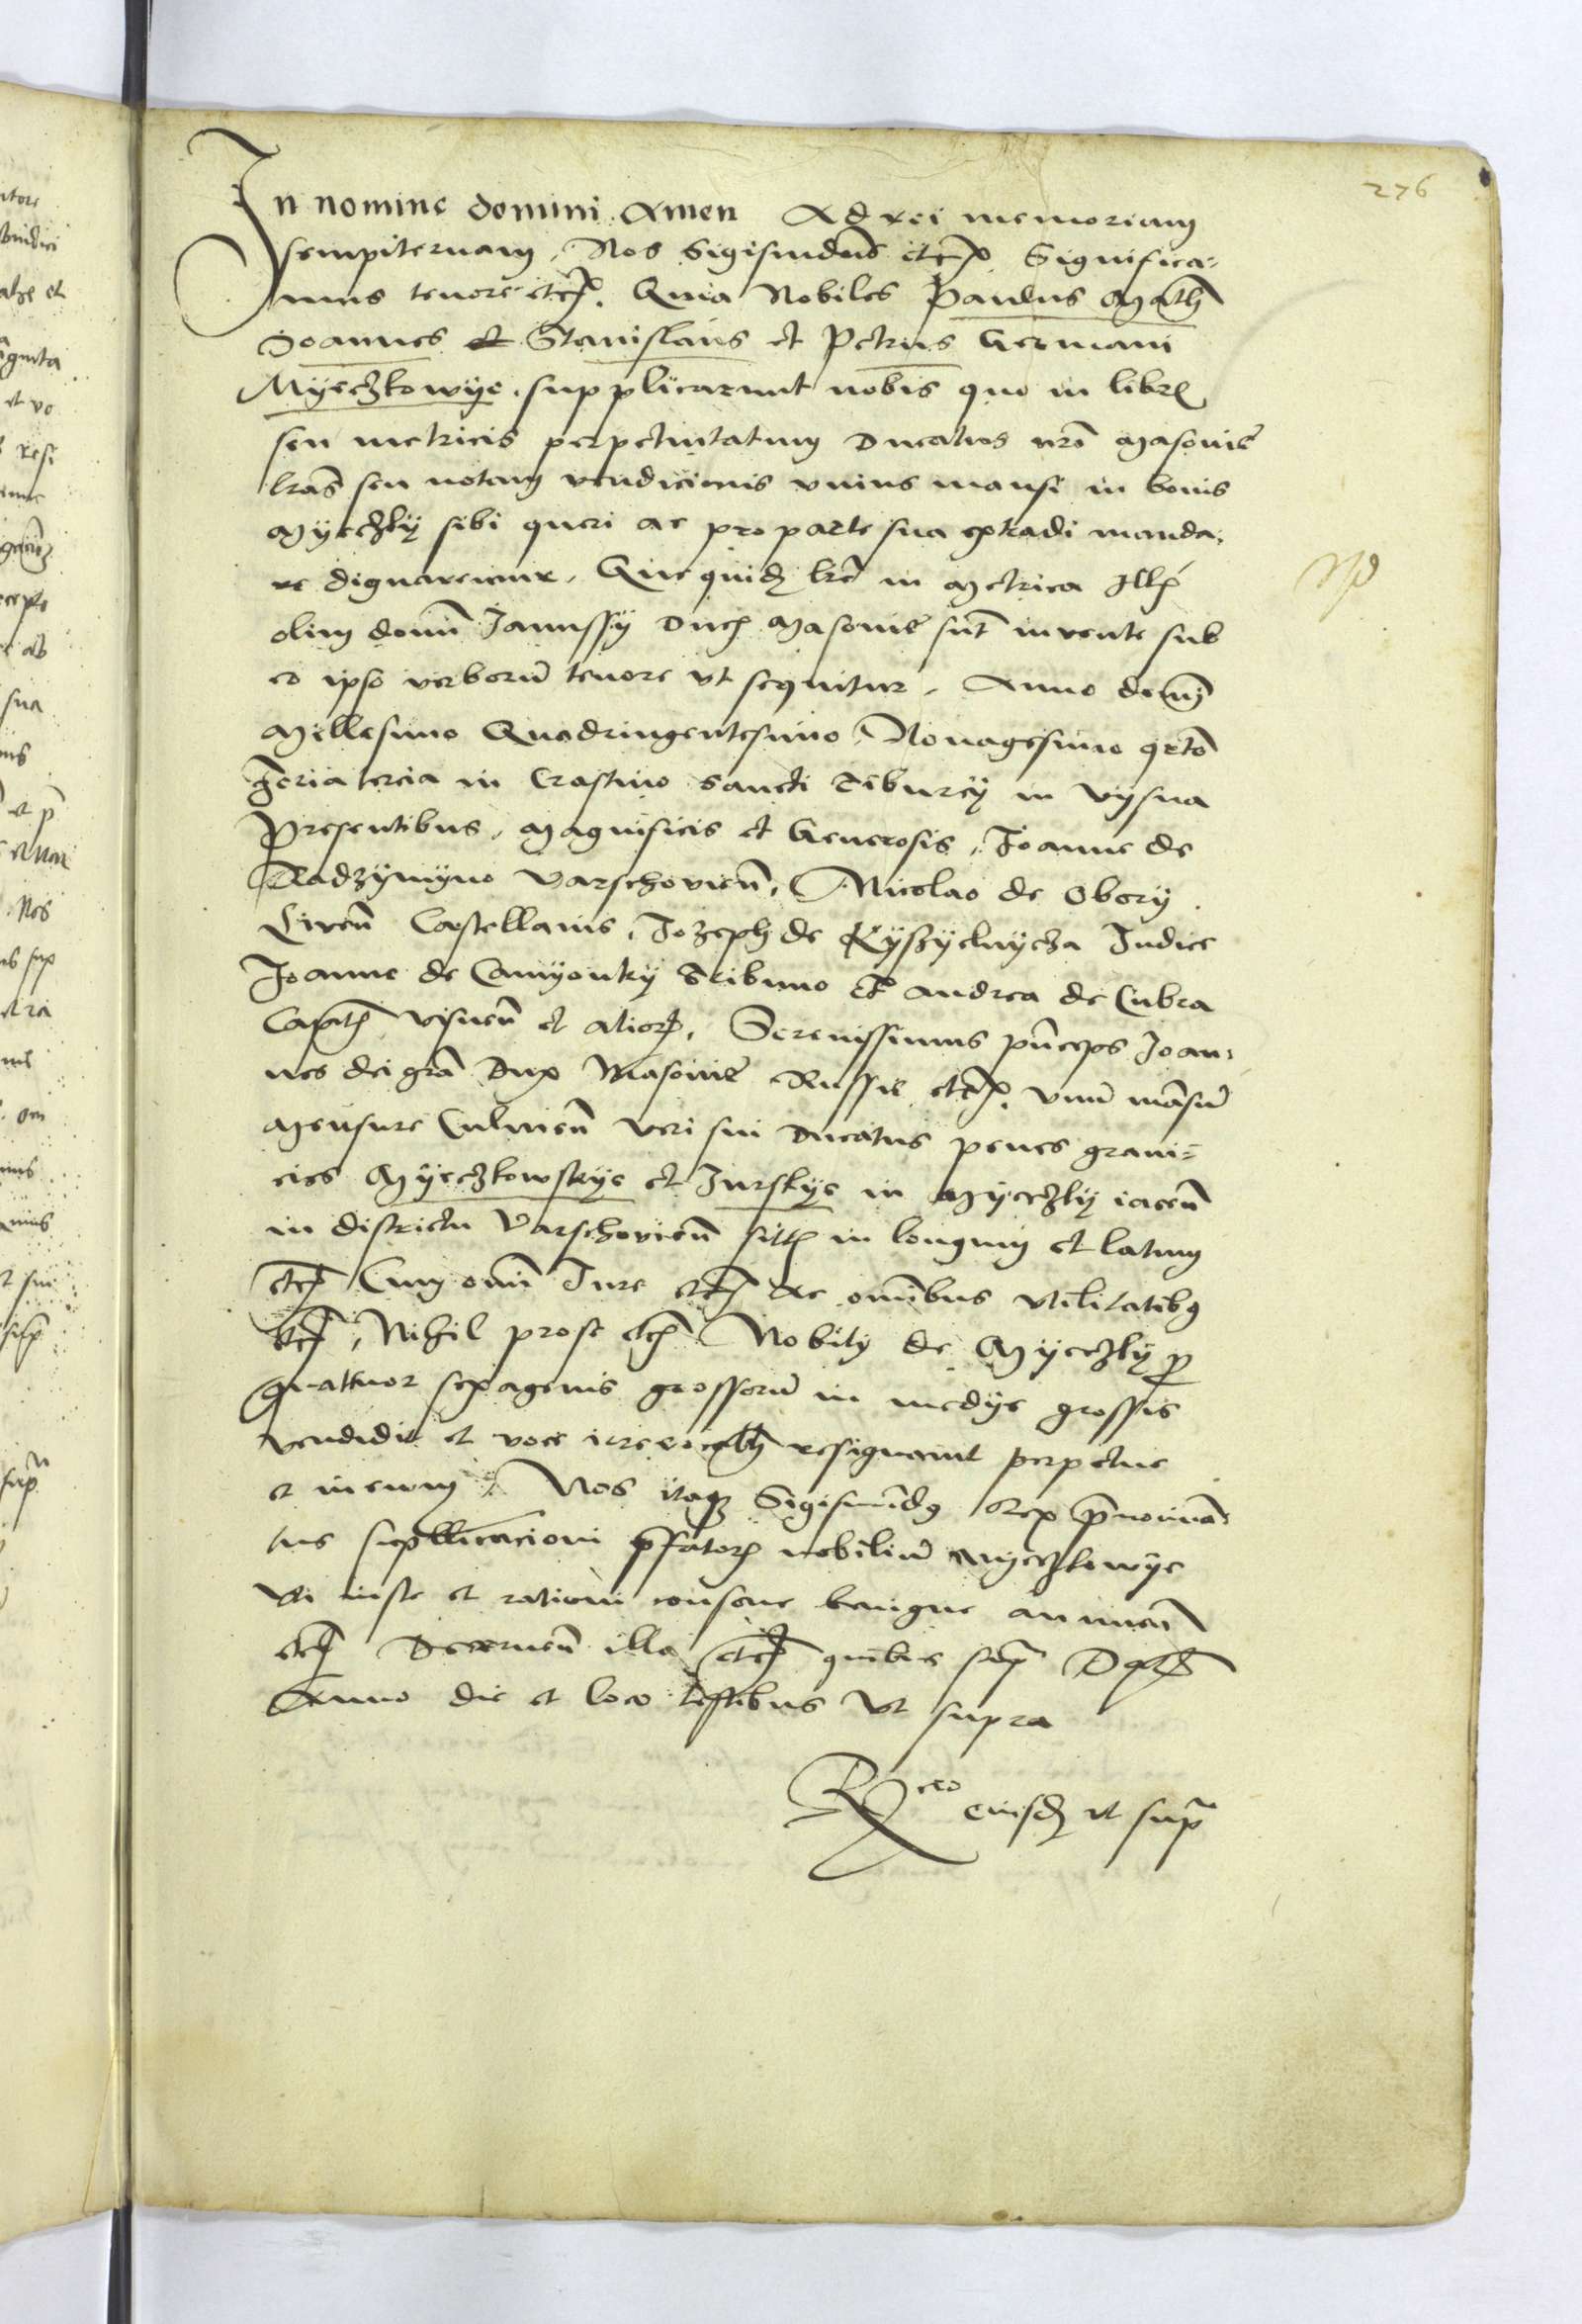 276
In nomine domini Amen Ad rei memoriam
sempiternam, Nos Sigismdus etc̃. Significa-
mus tenore etc̃. Quia Nobiles Paulus Math̃
Joannes et Stanislaus et Petrus Germani
Myeczkowye supplicarunt nobis quo in libr̃
seu metricis perpetuitatum Ducatus nr̃i Masouiẽ
lr̃as seu notam vendicionis vnius mansi in bonis
Myeczky sibi queri ac pro parte sua extradi manda-
re dignaremur, Que quid̃ lr̃e in Metrica Ill̃
olim domĩ Janussy Duc̃ Masouiẽ sũt invente sub
eo ipso verborũ tenore vt sequitur, Anno domĩ
Millesimo Quadringentesimo, Nonagesimo qrto
Feria tercia in Crastino Sancti Tiburcÿ in Vysna
Presentibus, Magnificis et Generosis, Joanne de
Radzÿmÿno Varschouieñ, Nicolao de Oborÿ
Liveñ Castellanis, Jozeph de Kÿszÿelnÿcza Judice
Joanne de Camÿonkÿ Tribuno et andrea de Cubra
Capit̃ visneñ et alior̃, Serenissimus pñceps Joan-
nes dei gr̃a Dux Masouiẽ Russie etc̃. vnũ mãsũ
Mensure Culmeñ veri sui Ducatus penes grani-
cies Mÿeczkowskÿe et Jurskÿe in Mÿeczkÿ iaceñ
in districtu Varschouieñ sitũ in longum et latum
etc̃ Cum omĩ Jure etc̃ Ac omĩbus vtilitatibꝰ
etc̃, Nihil pro se etc̃ Nobilꝫ de Mÿeczkÿ ꝓ
quattuor sexagenis grossorũ in medÿe grossis
vendidit et voce irreuocabili resignauit perpetue
et in ewm, Nos itaqꝫ Sigismũdꝰ Rex p̃nomina-
tus supplicacioni p̃fator̃ nobiliũ Mÿeczkowÿe
vti iuste et rationi consone benigne annueñ
etc̃ Decerneñ illa etc̃ quibus sup̃
Anno die et loco testibus vt supra
R̃cio eiusd̃ vt sup̃